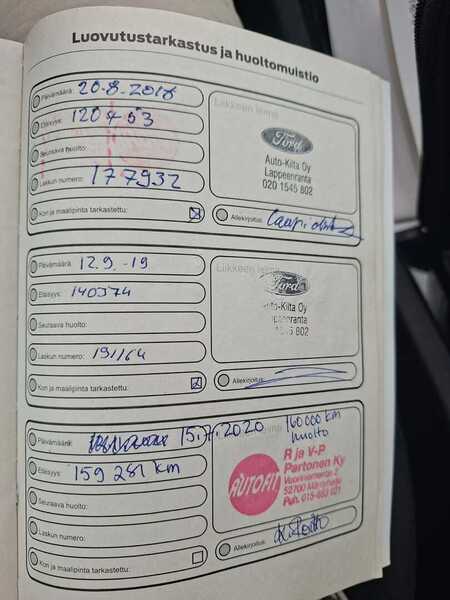 Luovutustarkastus ja huoltomuistio
Päivämäärä: 20.8.2018
Etäisyys: 120453
Seuraava huolto:
Laskun numero: 177932
Kori ja maalipinta tarkastettu:
Liikkeen leima
Ford
Auto-Kilta Oy
Lappeenranta
020 1545 802
Allekirjoitus:
Päivämäärä: 12.9.-19
Etäisyys: 140374
Seuraava huolto:
Laskun numero: 191164
Kori ja maalipinta tarkastettu:
Liikkeen
Ford
uto-Kilta Oy
ppeenranta
1545 802
Allekirjoitus:
Päivämäärä: 15.7.2020
Etäisyys: 159 281 km
Seuraava huolto:
Laskun numero:
Kori ja maalipinta tarkastettu:
160 000 km
huolto
AUTOFIT
R ja V-P
Partonen Ky
52700 Mäntyharju
Puh. 015-
Allekirjoitus: